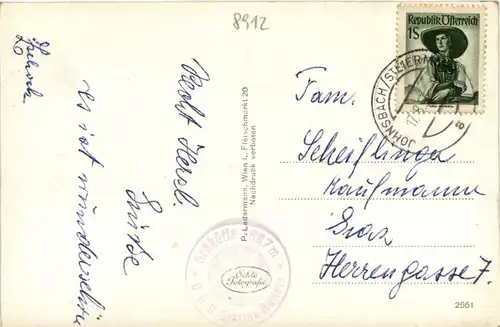 8912
Republik Österreich
1S
JOHNSBACH (STEIERM
Recht Herzl.
Grüße
es ist wunderschön
P. Ledermann, Wien I., Fleischmarkt 20
Nachdruck verboten
Echte
Fotografie
Fam.
Scheiflinger
Kaufmann
Graz
Herrengasse 7.
2551